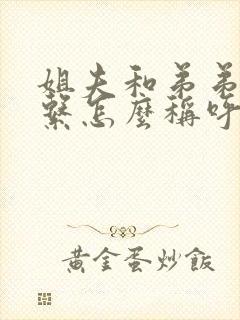 姐夫和弟弟
繫怎麼稱呼
黃金蛋炒飯